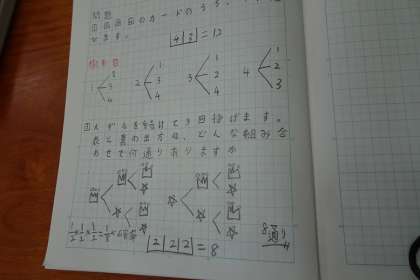 問題
1 2 3 4 のカードのうち、
できます。
4 3 = 12
樹形図
1 2 3 4
2 1 3 4
3 1 2 4
4 1 2 3
メダルを続けて3回投げます。
表と裏の出方は、どんな組み合
わせで何通りありますか
1/2 × 1/2 × 1/2 = 1/8
8通り
2 2 2 = 8